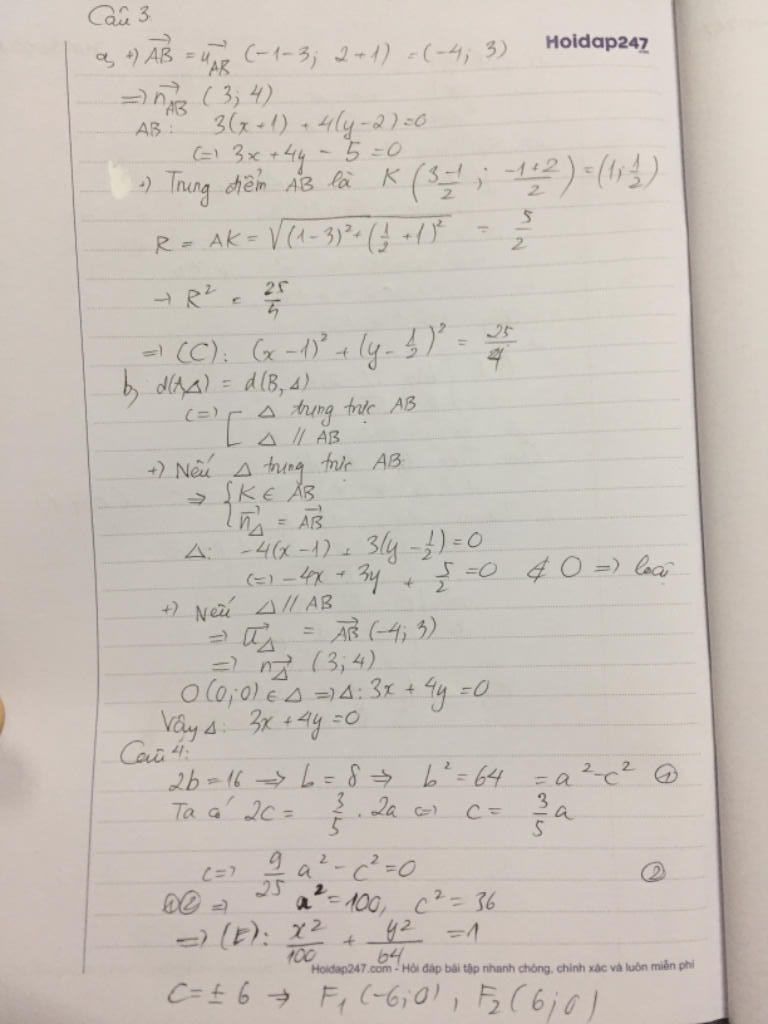 Câu 3.
Hoidap247
a, +) $\overrightarrow{AB} = \overrightarrow{u_{AB}}$ (-1-3; 2+1) = (-4; 3)
=> $\overrightarrow{n_{AB}}$ (3; 4)
AB: 3(x+1) + 4(y-2) = 0
<=> 3x + 4y - 5 = 0
+) Trung điểm AB là K $\left(\frac{3-1}{2}; \frac{-1+2}{2}\right) = (1; \frac{1}{2})$
R = AK = $\sqrt{(1-3)^2 + (\frac{1}{2}+1)^2}$ = $\frac{5}{2}$
→ R² = $\frac{25}{4}$
=> (C): (x-1)² + (y-$\frac{1}{2}$)² = $\frac{25}{4}$
b, d(A,Δ) = d(B,Δ)
<=> [ Δ trung trực AB
[ Δ // AB
+) Nếu Δ trung trực AB
=> { K ∈ AB
{ $\overrightarrow{n_Δ} = \overrightarrow{AB}$
Δ: -4(x-1) + 3(y-$\frac{1}{2}$) = 0
<=> -4x + 3y + $\frac{5}{2}$ = 0 ∌ O => loại
+) Nếu Δ // AB
=> $\overrightarrow{u_Δ} = \overrightarrow{AB}$ (-4; 3)
=> $\overrightarrow{n_Δ}$ (3; 4)
O(0; 0) ∈ Δ => Δ: 3x + 4y = 0
Vậy Δ: 3x + 4y = 0
Câu 4:
2b = 16 => b = 8 => b² = 64 = a² - c² ①
Ta có 2c = $\frac{3}{5}$ . 2a <=> c = $\frac{3}{5}$a
<=> $\frac{9}{25}$a² - c² = 0 ②
①② => a² = 100, c² = 36
=> (E): $\frac{x^2}{100} + \frac{y^2}{64}$ = 1
Hoidap247.com - Hỏi đáp bài tập nhanh chóng, chính xác và luôn miễn phí
C = ± 6 → F₁(-6; 0), F₂(6; 0)